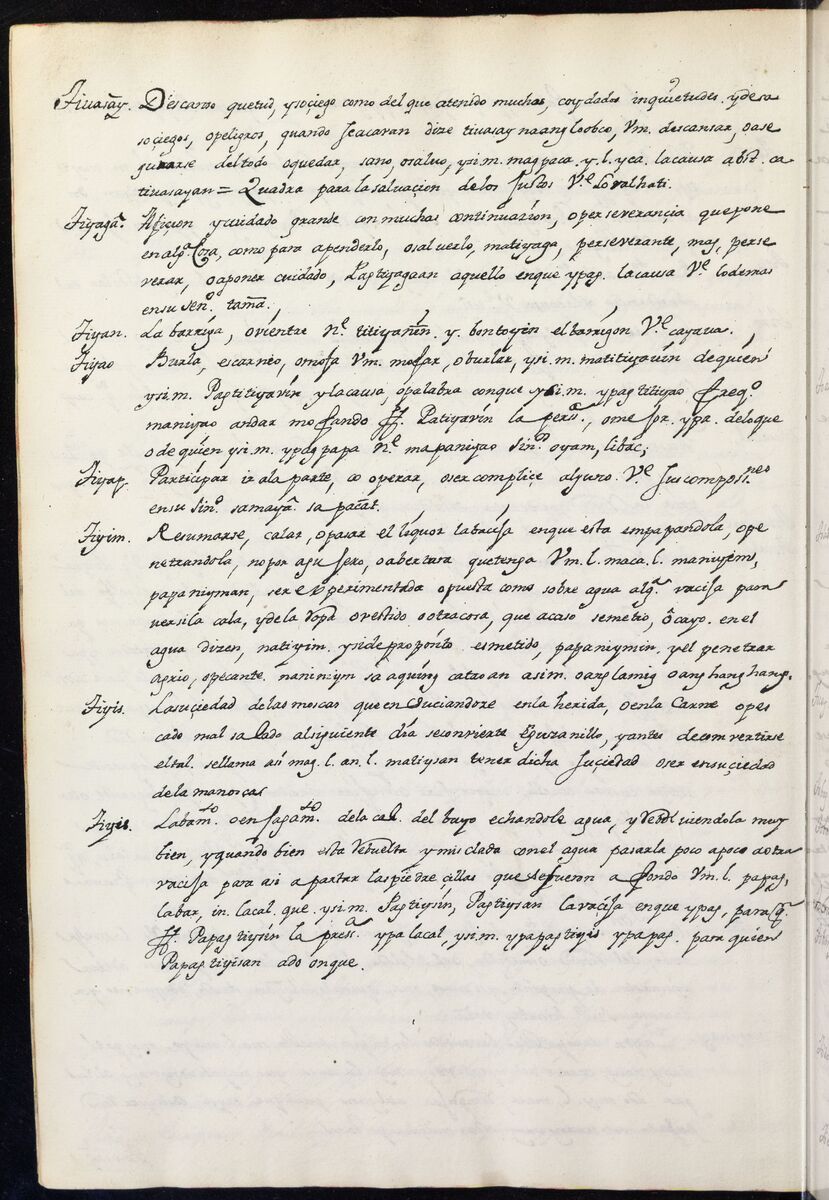 Tiuasay. Descanso quetud, ysoçiego como del que atenido muchos, coydados inquietudes. ydesa
soçiegos, opeligros, quando seacavan dize tiuasay naang loobco, Vm. descansar, oase
gurarse deltodo oquedar, sano, osaluo, ysi.m. mag paca. y.l. yca. lacausa abst. ca
tiuasayan = Quadra para la saluaçion delos Justos Ve. Lovalhati.
Tiyaga. Afiçion ycuidado grande con muchas continuaçion, operseverançia quepone
en alga. Cosa, como para apenderlo, osaluerlo, matiyaga, perseverante, mag, perse
verar, oaponer cuidado, Pagtiyagaan aquello enque ypag. lacausa Ve. lodemas
ensu senº. tama.
Tiyan. La barriga, ovientre Ne. titiyanin. y. bontoyin el barrigon Ve. cayaua.
Tiyao Burla, escarnio, omofa Vm. mofar, oburlar, ysi.m. matitiyavin dequien
ysi.m. Pagtitiyavin ylacausa, opalabra conque ysi.m. ypagtitiyao freqº.
maniyao andar mofando ff. Patiyavin la pers., ome for. ypa. deloque
odequien ysi.m. ypagpapa Ne. mapaniyao sinº. oyam, libac;
Tiyap. Partiçipar ir ala parte, co operar, osercompliçe alguno. Ve. sus composiçnes
ensu sinº. samaya. sa pacat.
Tiyim. Resumarse, calar, opasar el liquor labasija enque esta empapandola, ope
netrandola, nopor agusero, oabertura quetenga Vm. l. maca. l. maniyim,
papaniyman, ser experimentada opuesta como sobre agua alga. vacija para
versila cala, ydela ropa ovestido ootracosa, que acaso semetio, ôcayo. en el
agua dizen, natiyim. ysideproposito esmetido, papaniymin. yel penetrar
agrio, opecante. naniniym sa aquing catauan asim. oang lamig oanghanghang.
Tiyis. Lasuçiedad delas moscas que ensuciandose enla herida, oenla Carne opes
cado mal salado alsiguiente dia seconvierte Eguzanillo, yantes deconvertirse
eltal. sellama asi mag. l. an. l. matiysan tener dicha suçiedad oser ensuçiedad
dela manoscas
Tiyis. Labamto. oensagamto. dela cal. del buyo echandole agua, y rebolviendola muy
bien, yquando bien esta rebuelta ymisclada conel agua pasarla poco apoco aotra
vacija para asi apartar laspiedreçillas que sefueron afondo Vm. l. papag,
labar, in. lacal. que ysi.m. Pagtiysin, Pagtiysan lavaçija enque ypag, paraq.
ff. Papagtiysin la pers. ypa lacal, ysi.m. ypapagtiyis ypapag. para quien
Papagtiyisan ado onque.